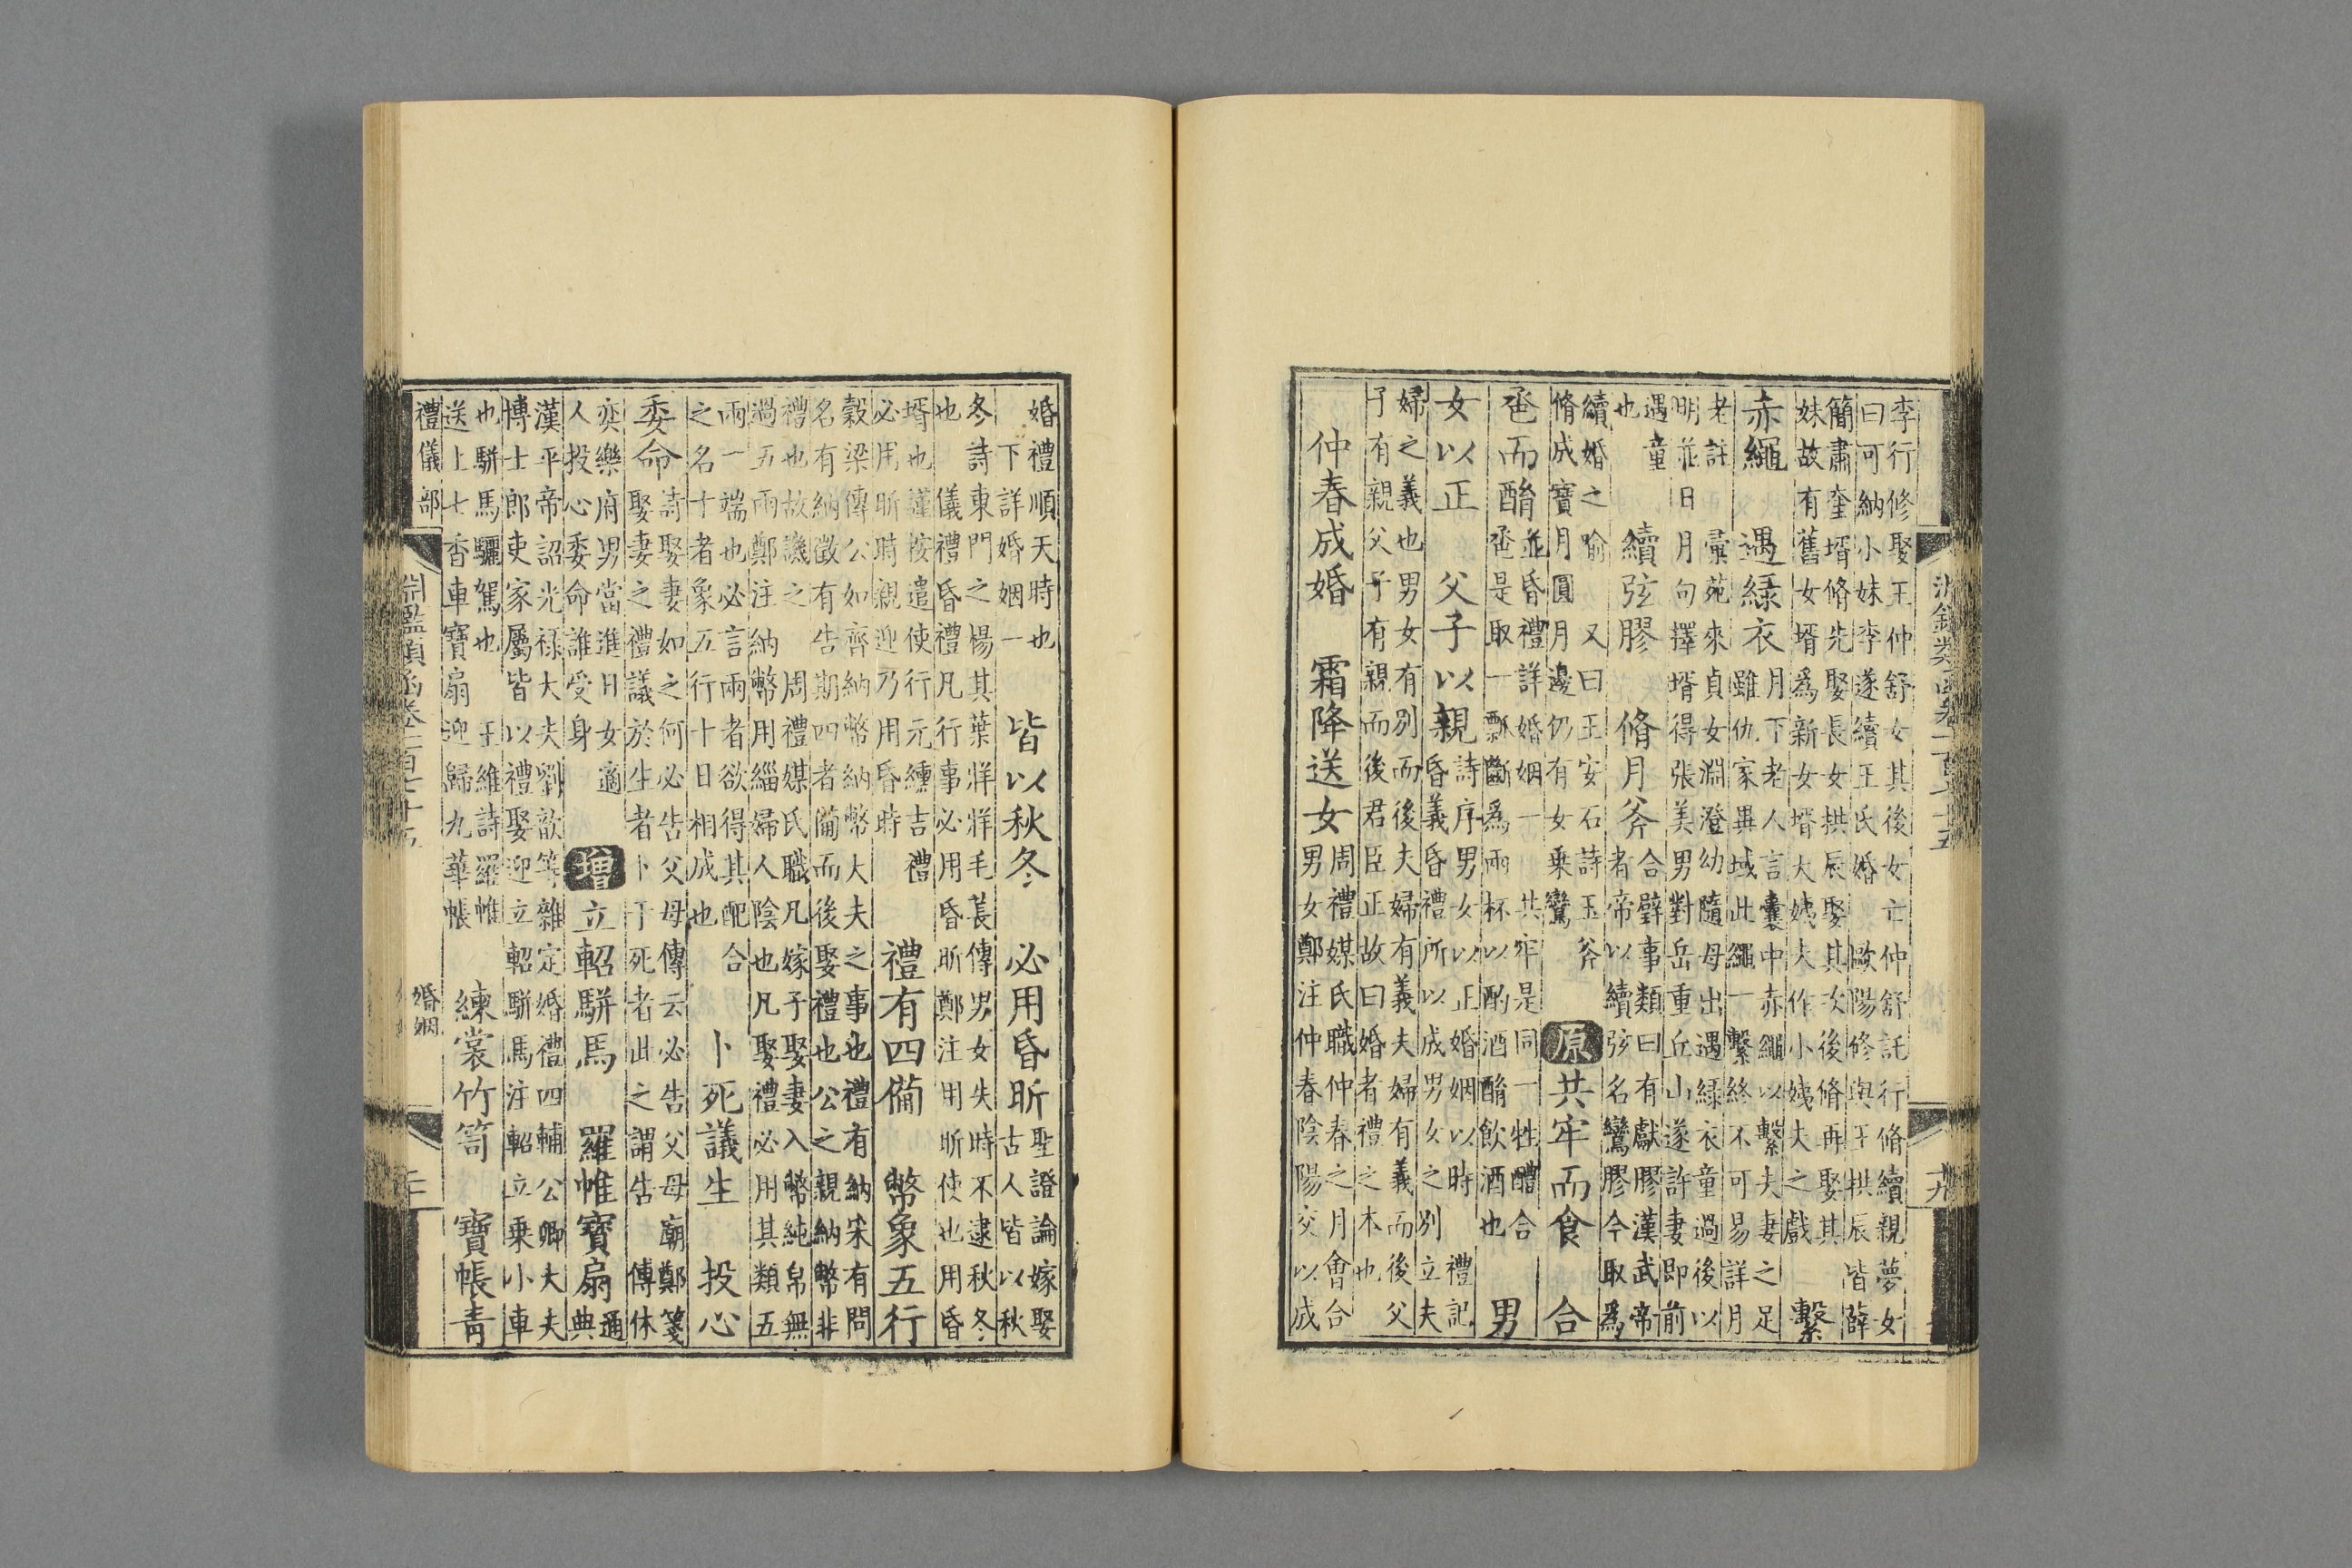 淵鑑類函卷一百七十五 十九
李行修娶王仲舒女其後女亡仲舒託行脩續親夢女
曰可納小妹李遂續王氏婚 歐陽修與王拱辰皆薛
簡肅奎壻脩先娶長女拱辰娶其次後脩再娶其
妹故有舊女壻為新女壻大姨夫作小姨夫之戲
繫
赤繩 遇綠衣
月下老人言囊中赤繩以繫夫妻之足
雖仇家異域此繩一繫終不可易詳月
老註 彚苑來貞女淵澄幼隨母出遇綠衣童過後以
明並日月句擇壻得張美男對岳重丘山遂許妻即前
遇童
也
續弦膠 脩月斧
合璧事類曰有獻膠漢武帝
者帝以續弦名鸞膠今取為
續婚之喻 又曰王安石詩玉斧
脩成寶月圓月邊仍有女乘鸞
原 共牢而食 合
巹而酳
並昏禮詳婚姻一 共牢是同一牲醴合
巹是取一瓢斷為兩杯以酌酒酳飲酒也
男
女以正 父子以親
詩序男女以正婚姻以時 禮記
昏義昏禮所以成男女之別立夫
婦之義也男女有別而後夫婦有義夫婦有義而後父
子有親父子有親而後君臣正故曰婚者禮之本也
仲春成婚 霜降送女
周禮媒氏職仲春之月會合
男女鄭注仲春陰陽交以成
婚禮順天時也
下詳婚姻一
皆以秋冬 必用昏昕
聖證論嫁娶
古人皆以秋
冬詩東門之楊其葉牂牂毛萇傳男女失時不逮秋冬
也 儀禮昏禮凡行事必用昏昕鄭注用昕使也用昏
壻也謹按遣使行元纁吉禮
必用昕時親迎乃用昏時
禮有四備 幣象五行
穀梁傳公如齊納幣納幣大夫之事也禮有納采有問
名有納徵有告期四者備而後娶禮也公之親納幣非
禮也故譏之 周禮媒氏職凡嫁子娶妻入幣純帛無
過五兩鄭注納幣用緇婦人陰也凡娶禮必用其類五
兩一端也必言兩者欲得其配合
之名十者象五行十日相成也
卜死議生 投心
委命
詩娶妻如之何必告父母傳云必告父母廟鄭箋
娶妻之禮議於生者卜于死者此之謂告 傅休
奕樂府男當進日女適
人投心委命誰受身
增 立軺騈馬 羅帷寶扇
通
典
漢平帝詔光祿大夫劉歆等雜定婚禮四輔公卿大夫
博士郎吏家屬皆以禮娶迎立軺騈馬注軺立乗小車
也騈馬驪駕也 王維詩羅帷
送上七香車寶扇迎歸九華帳
練裳竹笥 寶帳青
禮儀部 淵鑑類函卷一百七十五 婚姻 二十